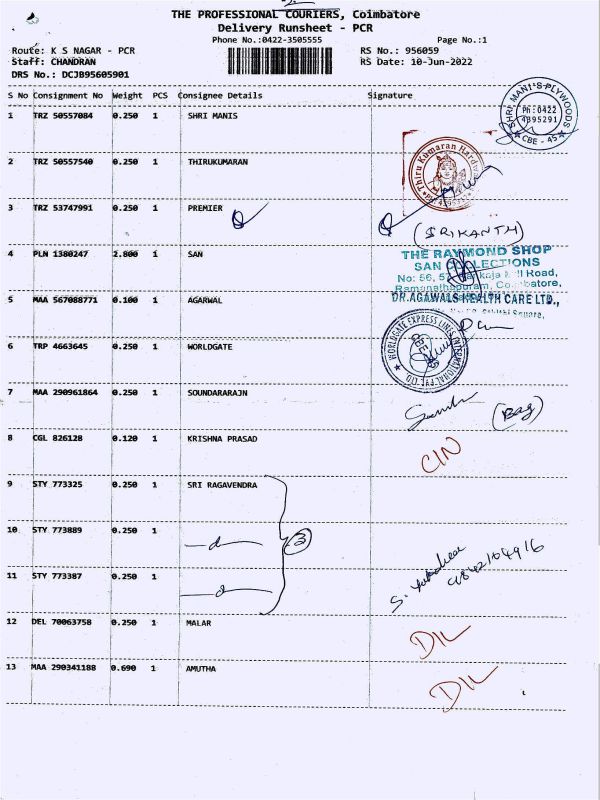 THE PROFESSIONAL COURIERS, Coimbatore
Delivery Runsheet - PCR
Phone No.:0422-3505555 Page No.:1
Route: K S NAGAR - PCR RS No.: 956059
Staff: CHANDRAN RS Date: 10-Jun-2022
DRS No.: DCJB95605901
S No Consignment No Weight PCS Consignee Details Signature
1 TRZ 50557084 0.250 1 SHRI MANIS
SHRI MANI'S PLYWOODS
Ph:0422
4395291
CBE - 45
2 TRZ 50557540 0.250 1 THIRUKUMARAN
Thiru Kumaran
3 TRZ 53747991 0.250 1 PREMIER
(SRIKANTH)
4 PLN 1380247 2.800 1 SAN
THE RAYMOND SHOP
SAN COLLECTIONS
No: 56, Road,
Ramanathapuram, Coimbatore,
5 MAA 567088771 0.100 1 AGARWAL
DR.AGAWALS HEALTH CARE LTD.,
Square,
6 TRP 4663645 0.250 1 WORLDGATE
WORLDGATE EXPRESS LINES INTERNATIONAL PVT. LTD.
7 MAA 290961864 0.250 1 SOUNDARARAJN
(Bag)
8 CGL 826128 0.120 1 KRISHNA PRASAD
CIN
9 STY 773325 0.250 1 SRI RAGAVENDRA
10 STY 773889 0.250 1
3
11 STY 773387 0.250 1
9842104916
12 DEL 70063758 0.250 1 MALAR
DIL
13 MAA 290341188 0.690 1 AMUTHA
DIL